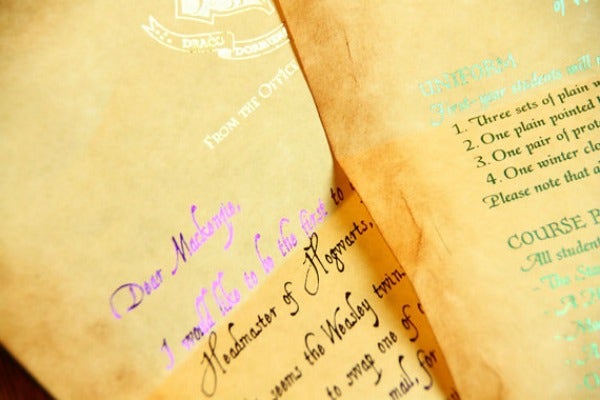 DRACO DORMIENS
FROM THE OFFICE
Dear Mackenzie,
I would like to be the first to
Headmaster of Hogwarts,
seems the Weasley twin
to swap one of
mail, for
of
UNIFORM
First-year students will
1. Three sets of plain w
2. One plain pointed
3. One pair of prot
4. One winter clo
Please note that al
COURSE
All student
- The Sta
- A